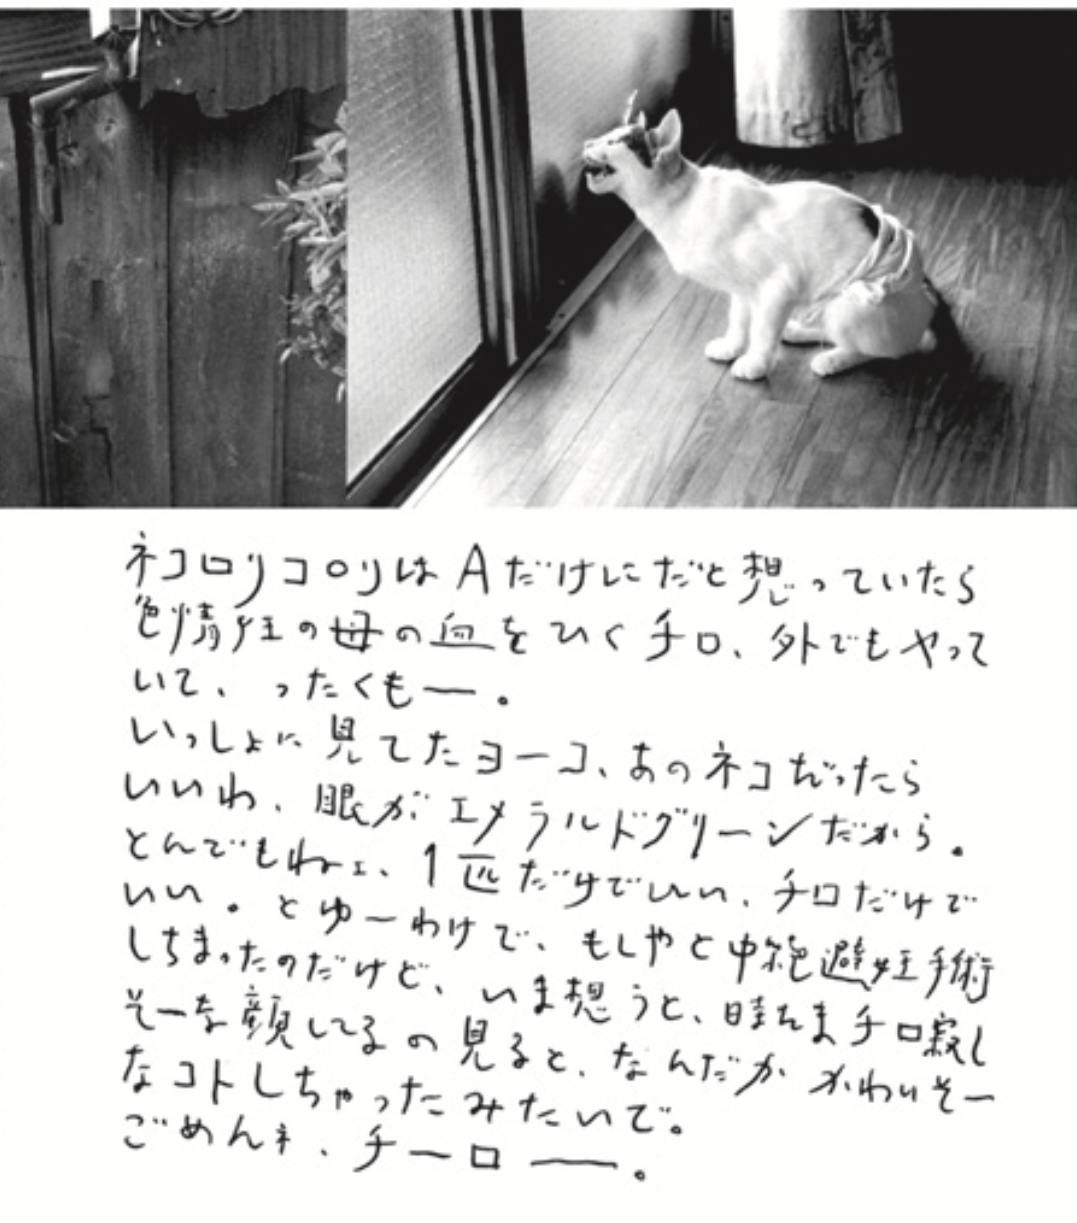 ネコロリコロリはAだけにだと想っていたら
色情狂の母の血をひくチロ、外でもやって
いて、ったくもー。
いっしょに見てたヨーコ、あのネコだったら
いいわ、眼がエメラルドグリーンだから。
とんでもねェ、1匹だけでいい、チロだけで
いい。とゆーわけで、もしやと中絶避妊手術
しちまったのだけど、いま想うと、時たまチロ寂し
そーな顔してるの見ると、なんだかかわいそー
なコトしちゃったみたいで。
ごめんネ、チーロー。